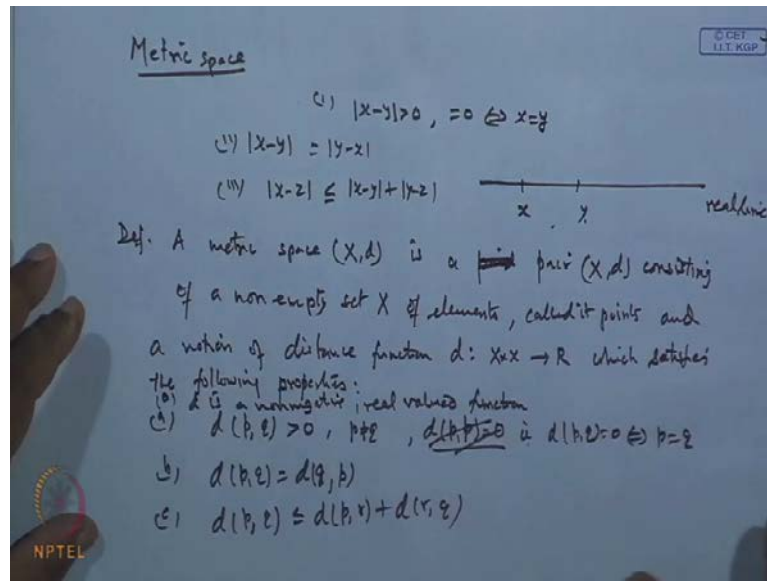 Metric space
© CET
I.I.T. KGP
(i) |x-y|>0, =0 ⇔ x=y
(ii) |x-y| = |y-x|
(iii) |x-z| ≤ |x-y|+|y-z|
x y real line
Def. A metric space (X,d) is a pair (X,d) consisting
of a non empty set X of elements, called it points and
a notion of distance function d: X×X → R which satisfies
the following properties:
(o) d is a nonnegative, real valued function
(a) d(p,q) >0, p≠q, d(p,p)=0 i d(p,q)=0 ⇔ p=q
(b) d(p,q) = d(q,p)
(c) d(p,q) ≤ d(p,r) + d(r,q)
NPTEL